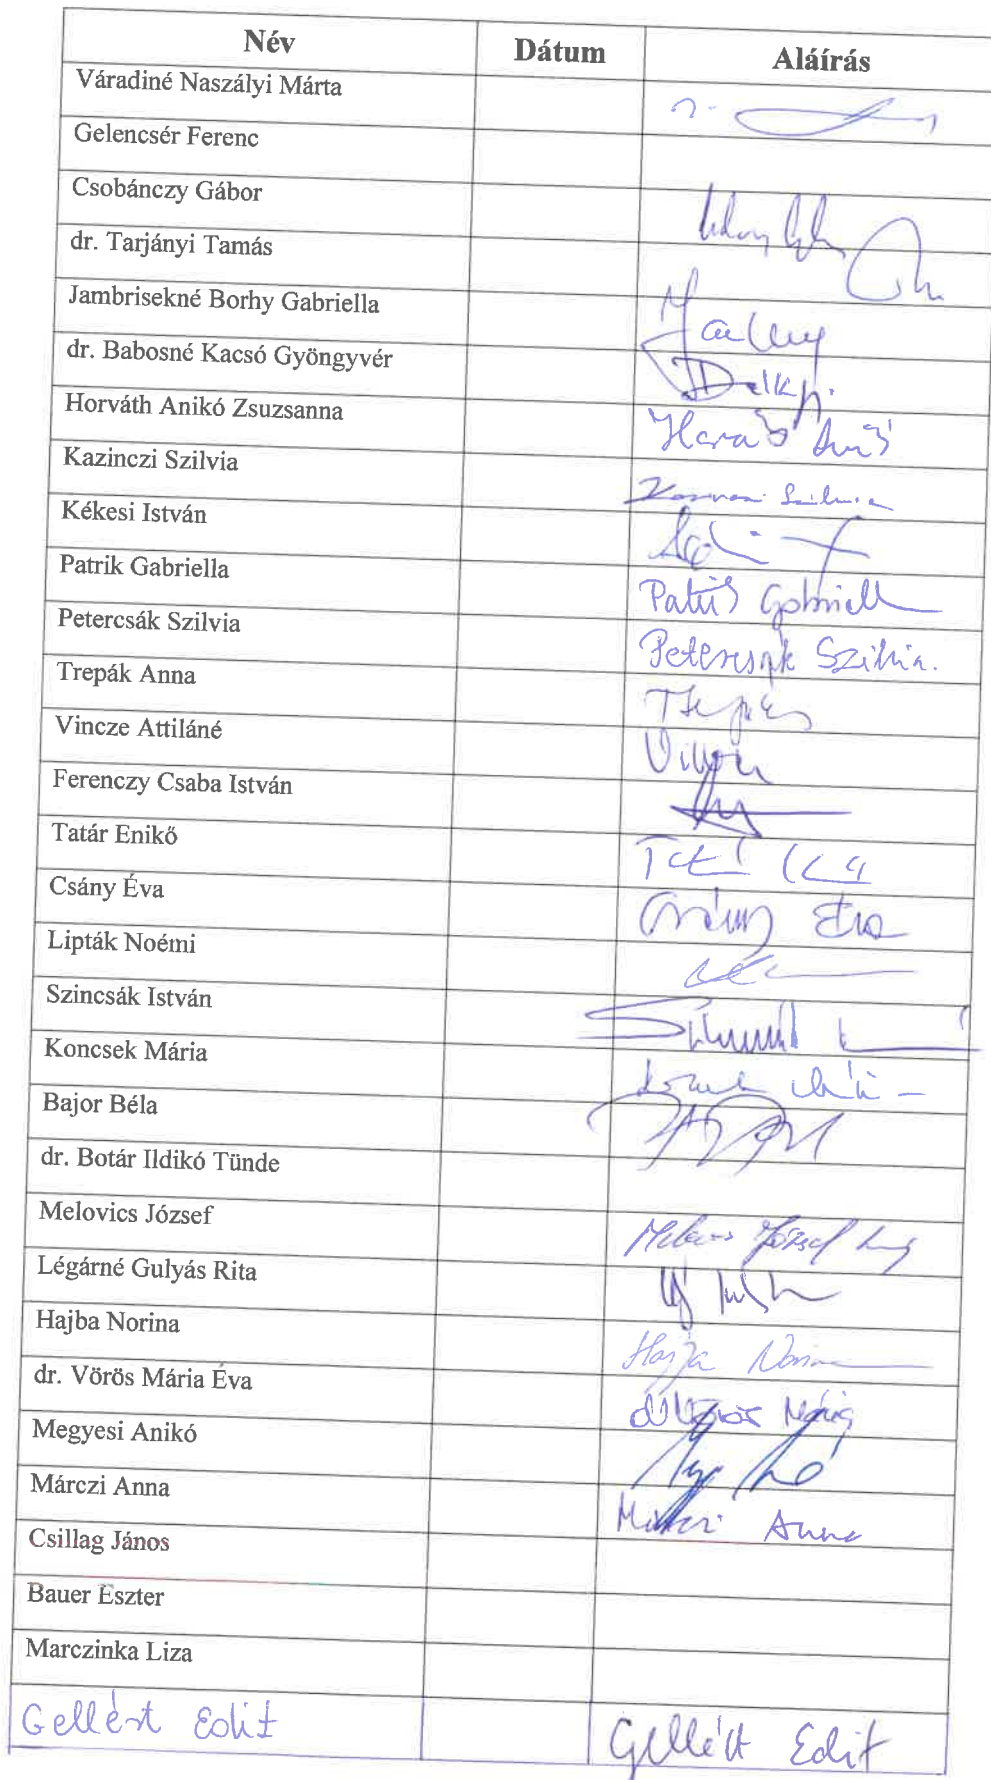 Név Dátum Aláírás
Váradiné Naszályi Márta
Gelencsér Ferenc
Csobánczy Gábor
dr. Tarjányi Tamás
Jambrisekné Borhy Gabriella
dr. Babosné Kacsó Gyöngyvér
Horváth Anikó Zsuzsanna
Kazinczi Szilvia
Kékesi István
Patrik Gabriella
Petercsák Szilvia Petercsák Szilvia.
Trepák Anna
Vincze Attiláné
Ferenczy Csaba István
Tatár Enikő
Csány Éva Csány Éva
Lipták Noémi
Szincsák István
Koncsek Mária
Bajor Béla
dr. Botár Ildikó Tünde
Melovics József
Légárné Gulyás Rita
Hajba Norina
dr. Vörös Mária Éva
Megyesi Anikó
Márczi Anna Anna
Csillag János
Bauer Eszter
Marczinka Liza
Gellért Edit Gellért Edit